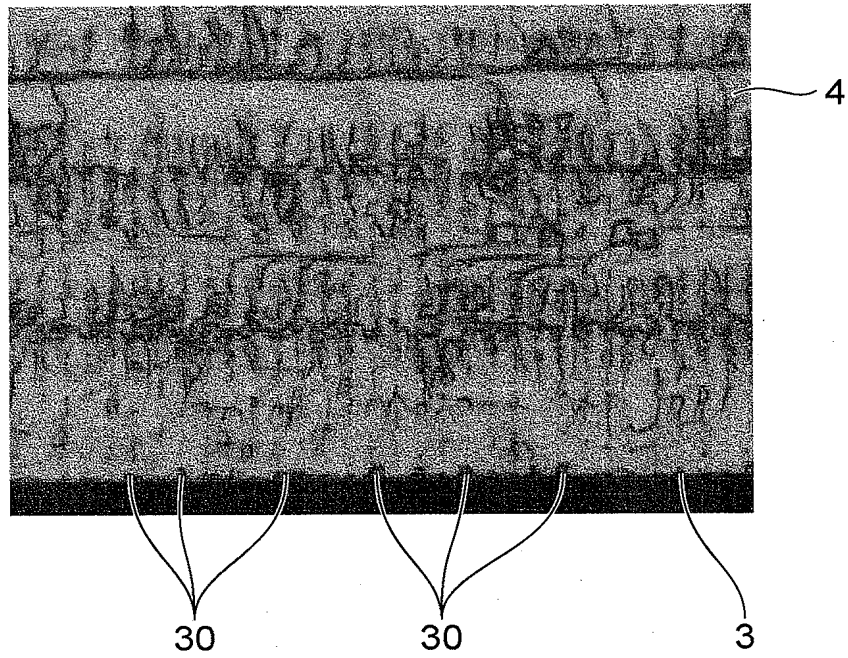 4
30 30 3